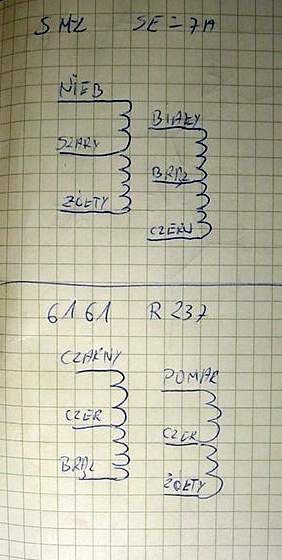 SML SE = 71A
NIEB
BIAŁY
SZARY
BRĄZ
ŻÓŁTY
CZERW
6161 R 237
CZARNY
POMAR
CZER
CZER
BRĄZ
ŻÓŁTY